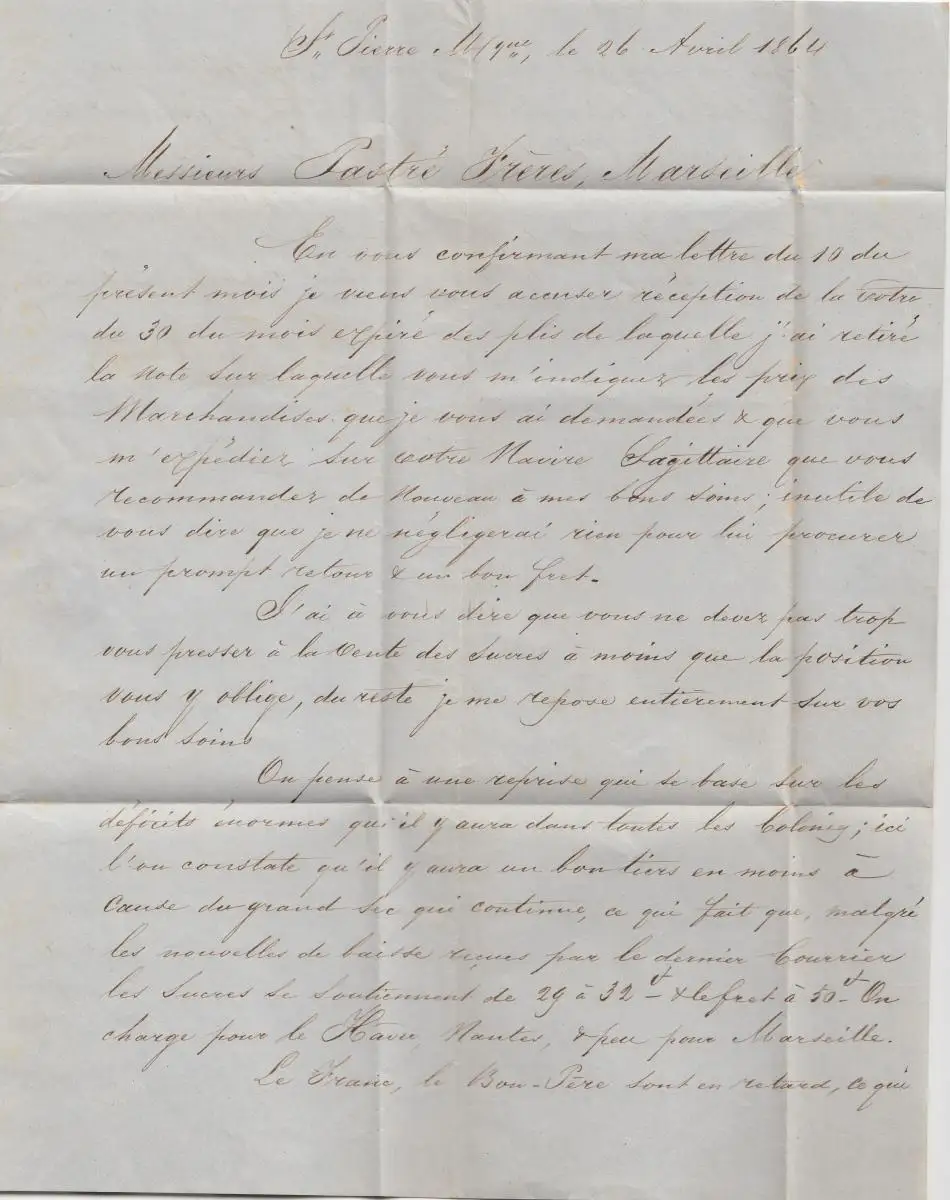 St Pierre M/que, le 26 Avril 1864
Messieurs Pastré Frères, Marseille
En vous confirmant ma lettre du 10 du
présent mois je viens vous accuser réception de la votre
du 30 du mois expiré des plis de laquelle j'ai retiré
la note sur laquelle vous m'indiquez les prix des
Marchandises que je vous ai demandées & que vous
m'expédiez sur votre Navire Sagittaire que vous
recommandez de nouveau à mes bons soins; inutile de
vous dire que je ne négligerai rien pour lui procurer
un prompt retour & un bon fret.
J'ai à vous dire que vous ne devez pas trop
vous presser à la vente des sucres à moins que la position
vous y oblige, du reste je me repose entièrement sur vos
bons soins
On pense à une reprise qui se base sur les
déficits énormes qu'il y aura dans toutes les Colonies; ici
l'on constate qu'il y aura un bon tiers en moins à
cause du grand sec qui continue, ce qui fait que, malgré
les nouvelles de baisse reçues par le dernier Courrier
les sucres se soutiennent de 29 à 32 f - & le fret à 50 f - On
charge pour le Havre, Nantes, & peu pour Marseille.
Le Franc, le Bon-Père sont en retard, ce qui